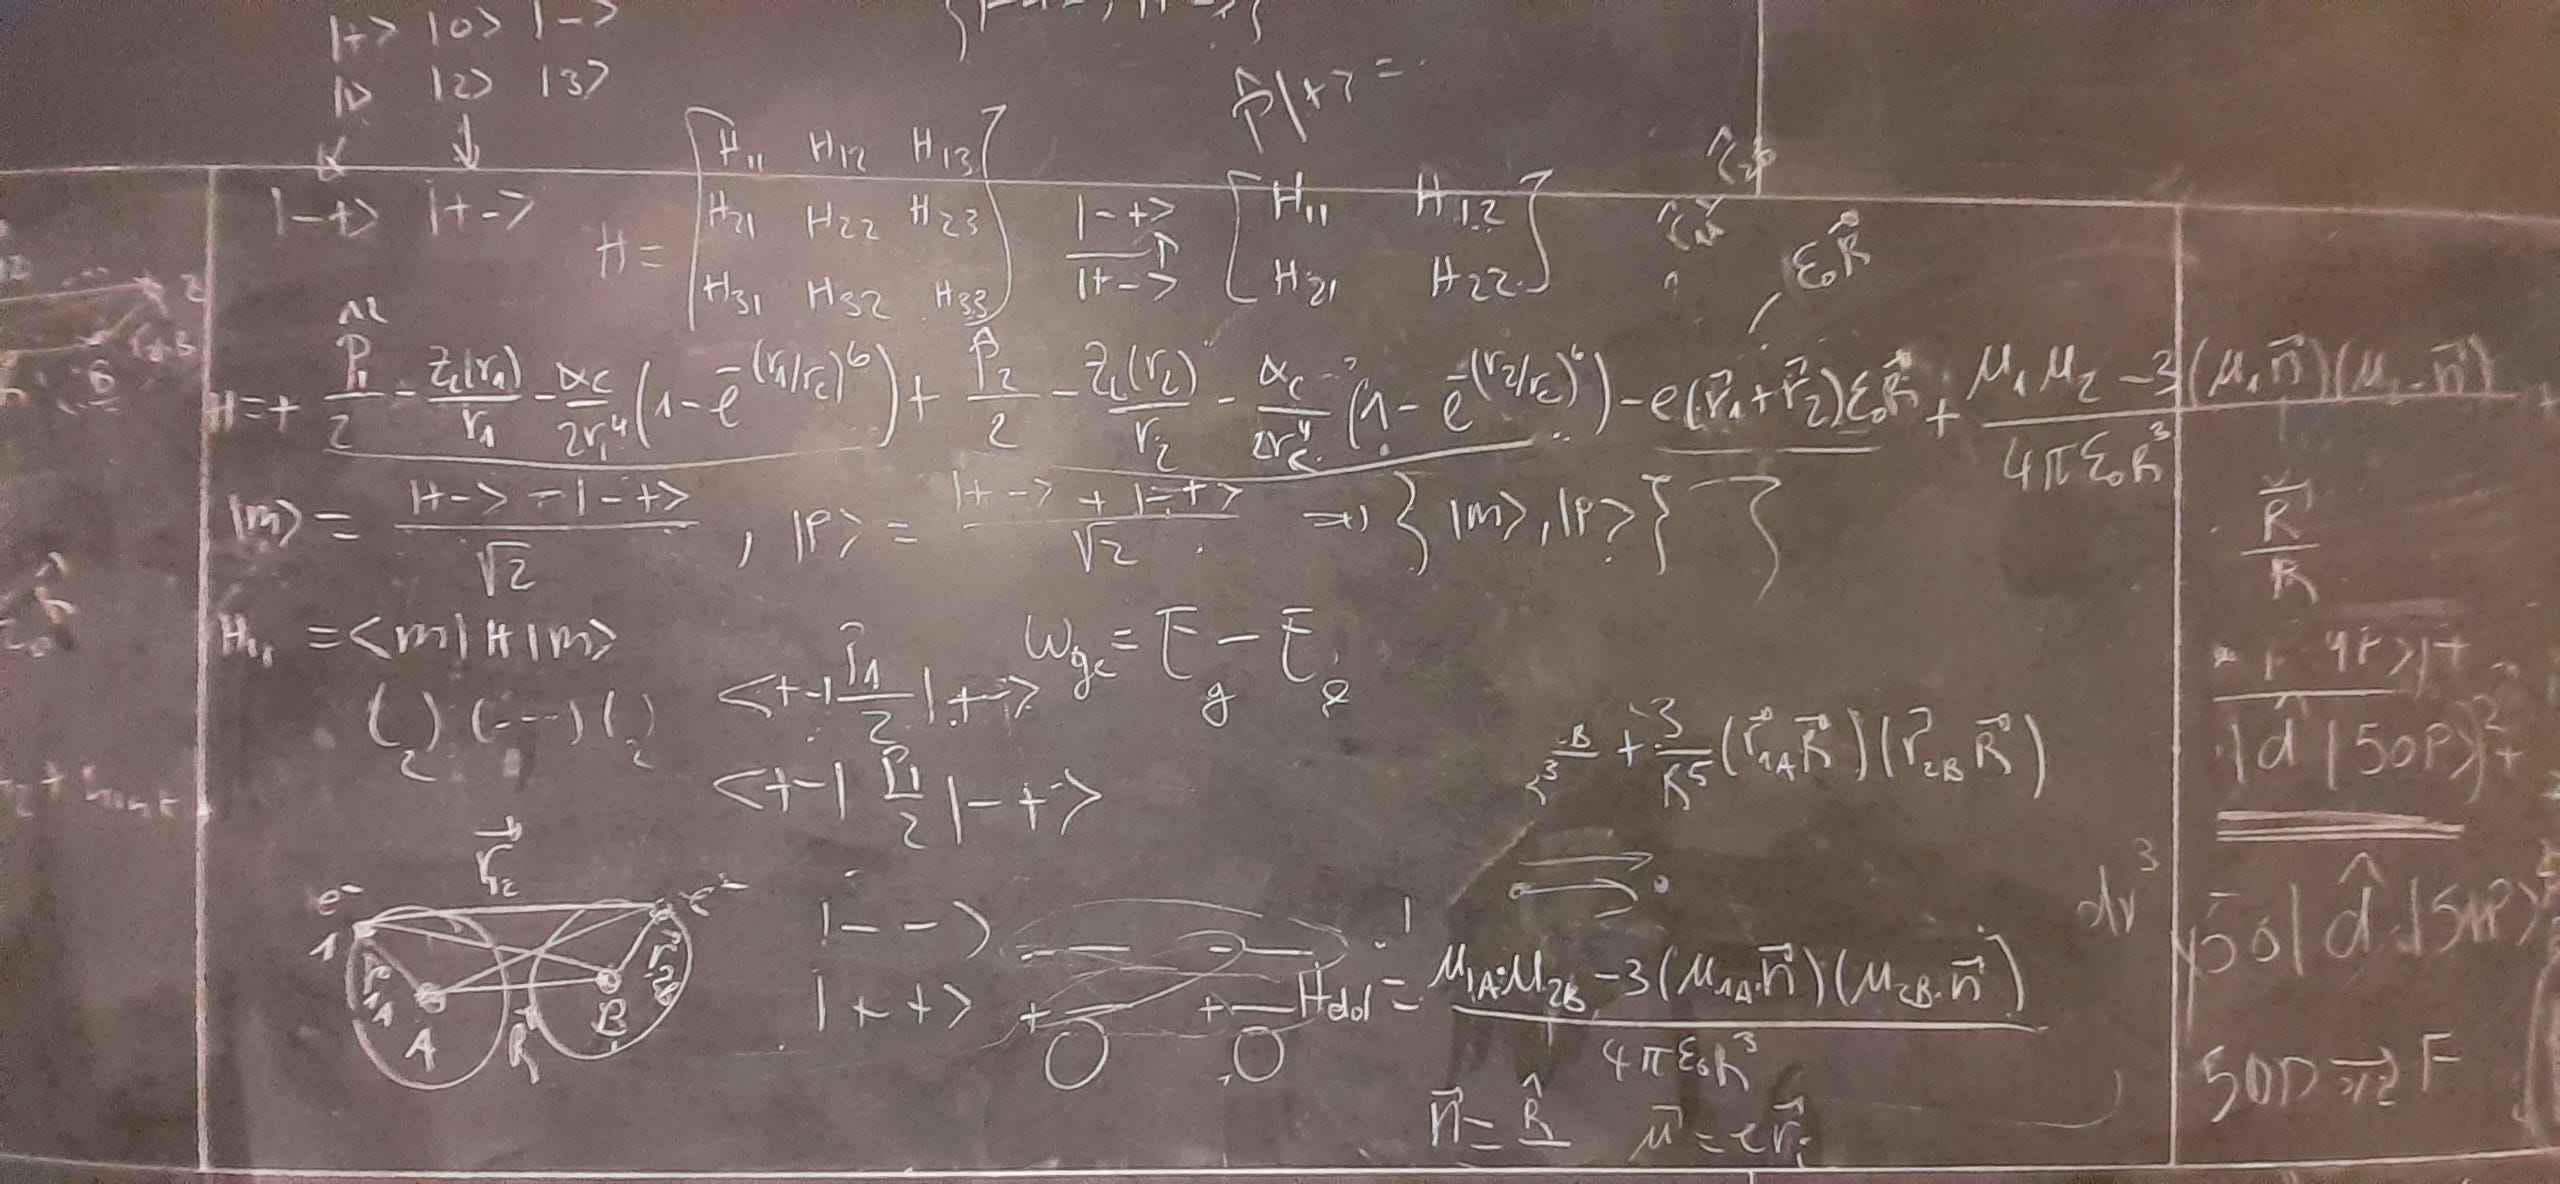 |+> |0> |->
|1> |2> |3>
P̂|+> =
|-+> |+->
H = [ H₁₁ H₁₂ H₁₃
H₂₁ H₂₂ H₂₃
H₃₁ H₃₂ H₃₃ ]
|-+>
|+->
[ H₁₁ H₁₂
H₂₁ H₂₂ ]
ε₀R⃗
H = + p̂₁²/2 - Z_c(r₁)/r₁ - α_c/2r₁⁴ (1 - e^-(r₁/r_c)⁶) + p̂₂/2 - Z_c(r₂)/r₂ - α_c/2r_c⁴ (1 - e^-(r₂/r_c)⁶) - e(r⃗₁ + r⃗₂)ε₀R⃗ + μ₁μ₂ - 3(μ₁n⃗)(μ₂·n⃗) / 4πε₀R³
|m> = |+-> - |-+> / √2 , |p> = |+-> + |-+> / √2 => { |m>, |p> }
R⃗/R
H₁₁ = <m|H|m>
ω_ge = E_g - E_e
( )₂ (---) ( )₂
<+-| p₁/2 |+->
<+-| p₁/2 |-+>
+ 3/R⁵ (r⃗₁A R⃗)(r⃗₂B R⃗)
|d̂|50P>|²+
r⃗₂
e⁻ e⁻
1
r₁A r₂B
A R B
|-->
|++>
- -
+ +
dr³
50|d̂|5nP>
H_dd = μ₁A·μ₂B - 3(μ₁A·n⃗)(μ₂B·n⃗) / 4πε₀R³
n⃗ = R̂ μ⃗ = er⃗ᵢ
50D F